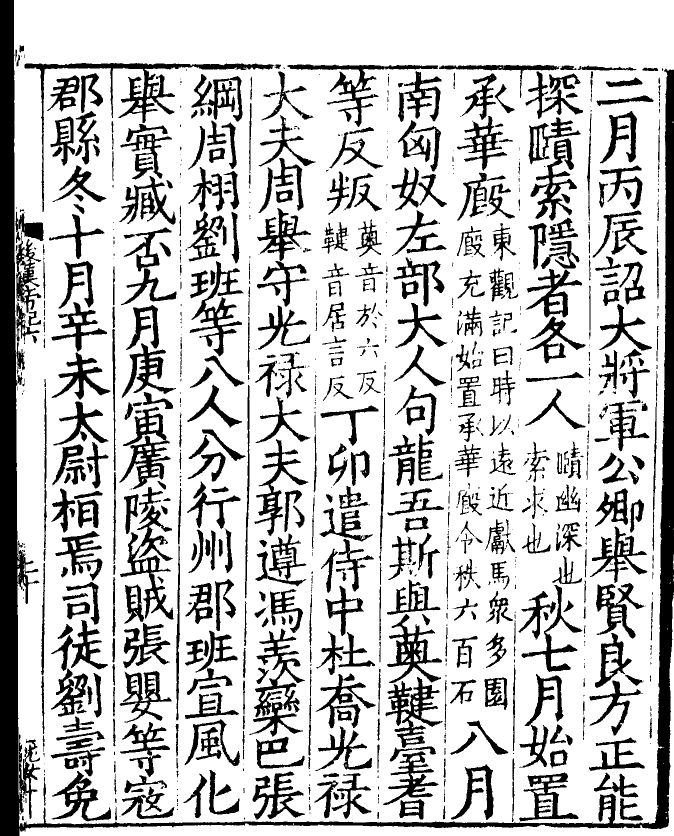 二月丙辰詔大將軍公卿舉賢良方正能
探賾索隱者各一人賾幽深也索求也秋七月始置
承華廄東觀記曰時以遠近獻馬衆多園廄充滿始置承華廄令秩六百石八月
南匈奴左部大人句龍吾斯與薁鞬臺耆
等反叛薁音於六反鞬音居言反丁卯遣侍中杜喬光祿
大夫周舉守光祿大夫郭遵馮羨欒巴張
綱周栩劉班等八人分行州郡班宣風化
舉實臧否九月庚寅廣陵盜賊張嬰等寇
郡縣冬十月辛未太尉桓焉司徒劉壽免
後漢帝紀六